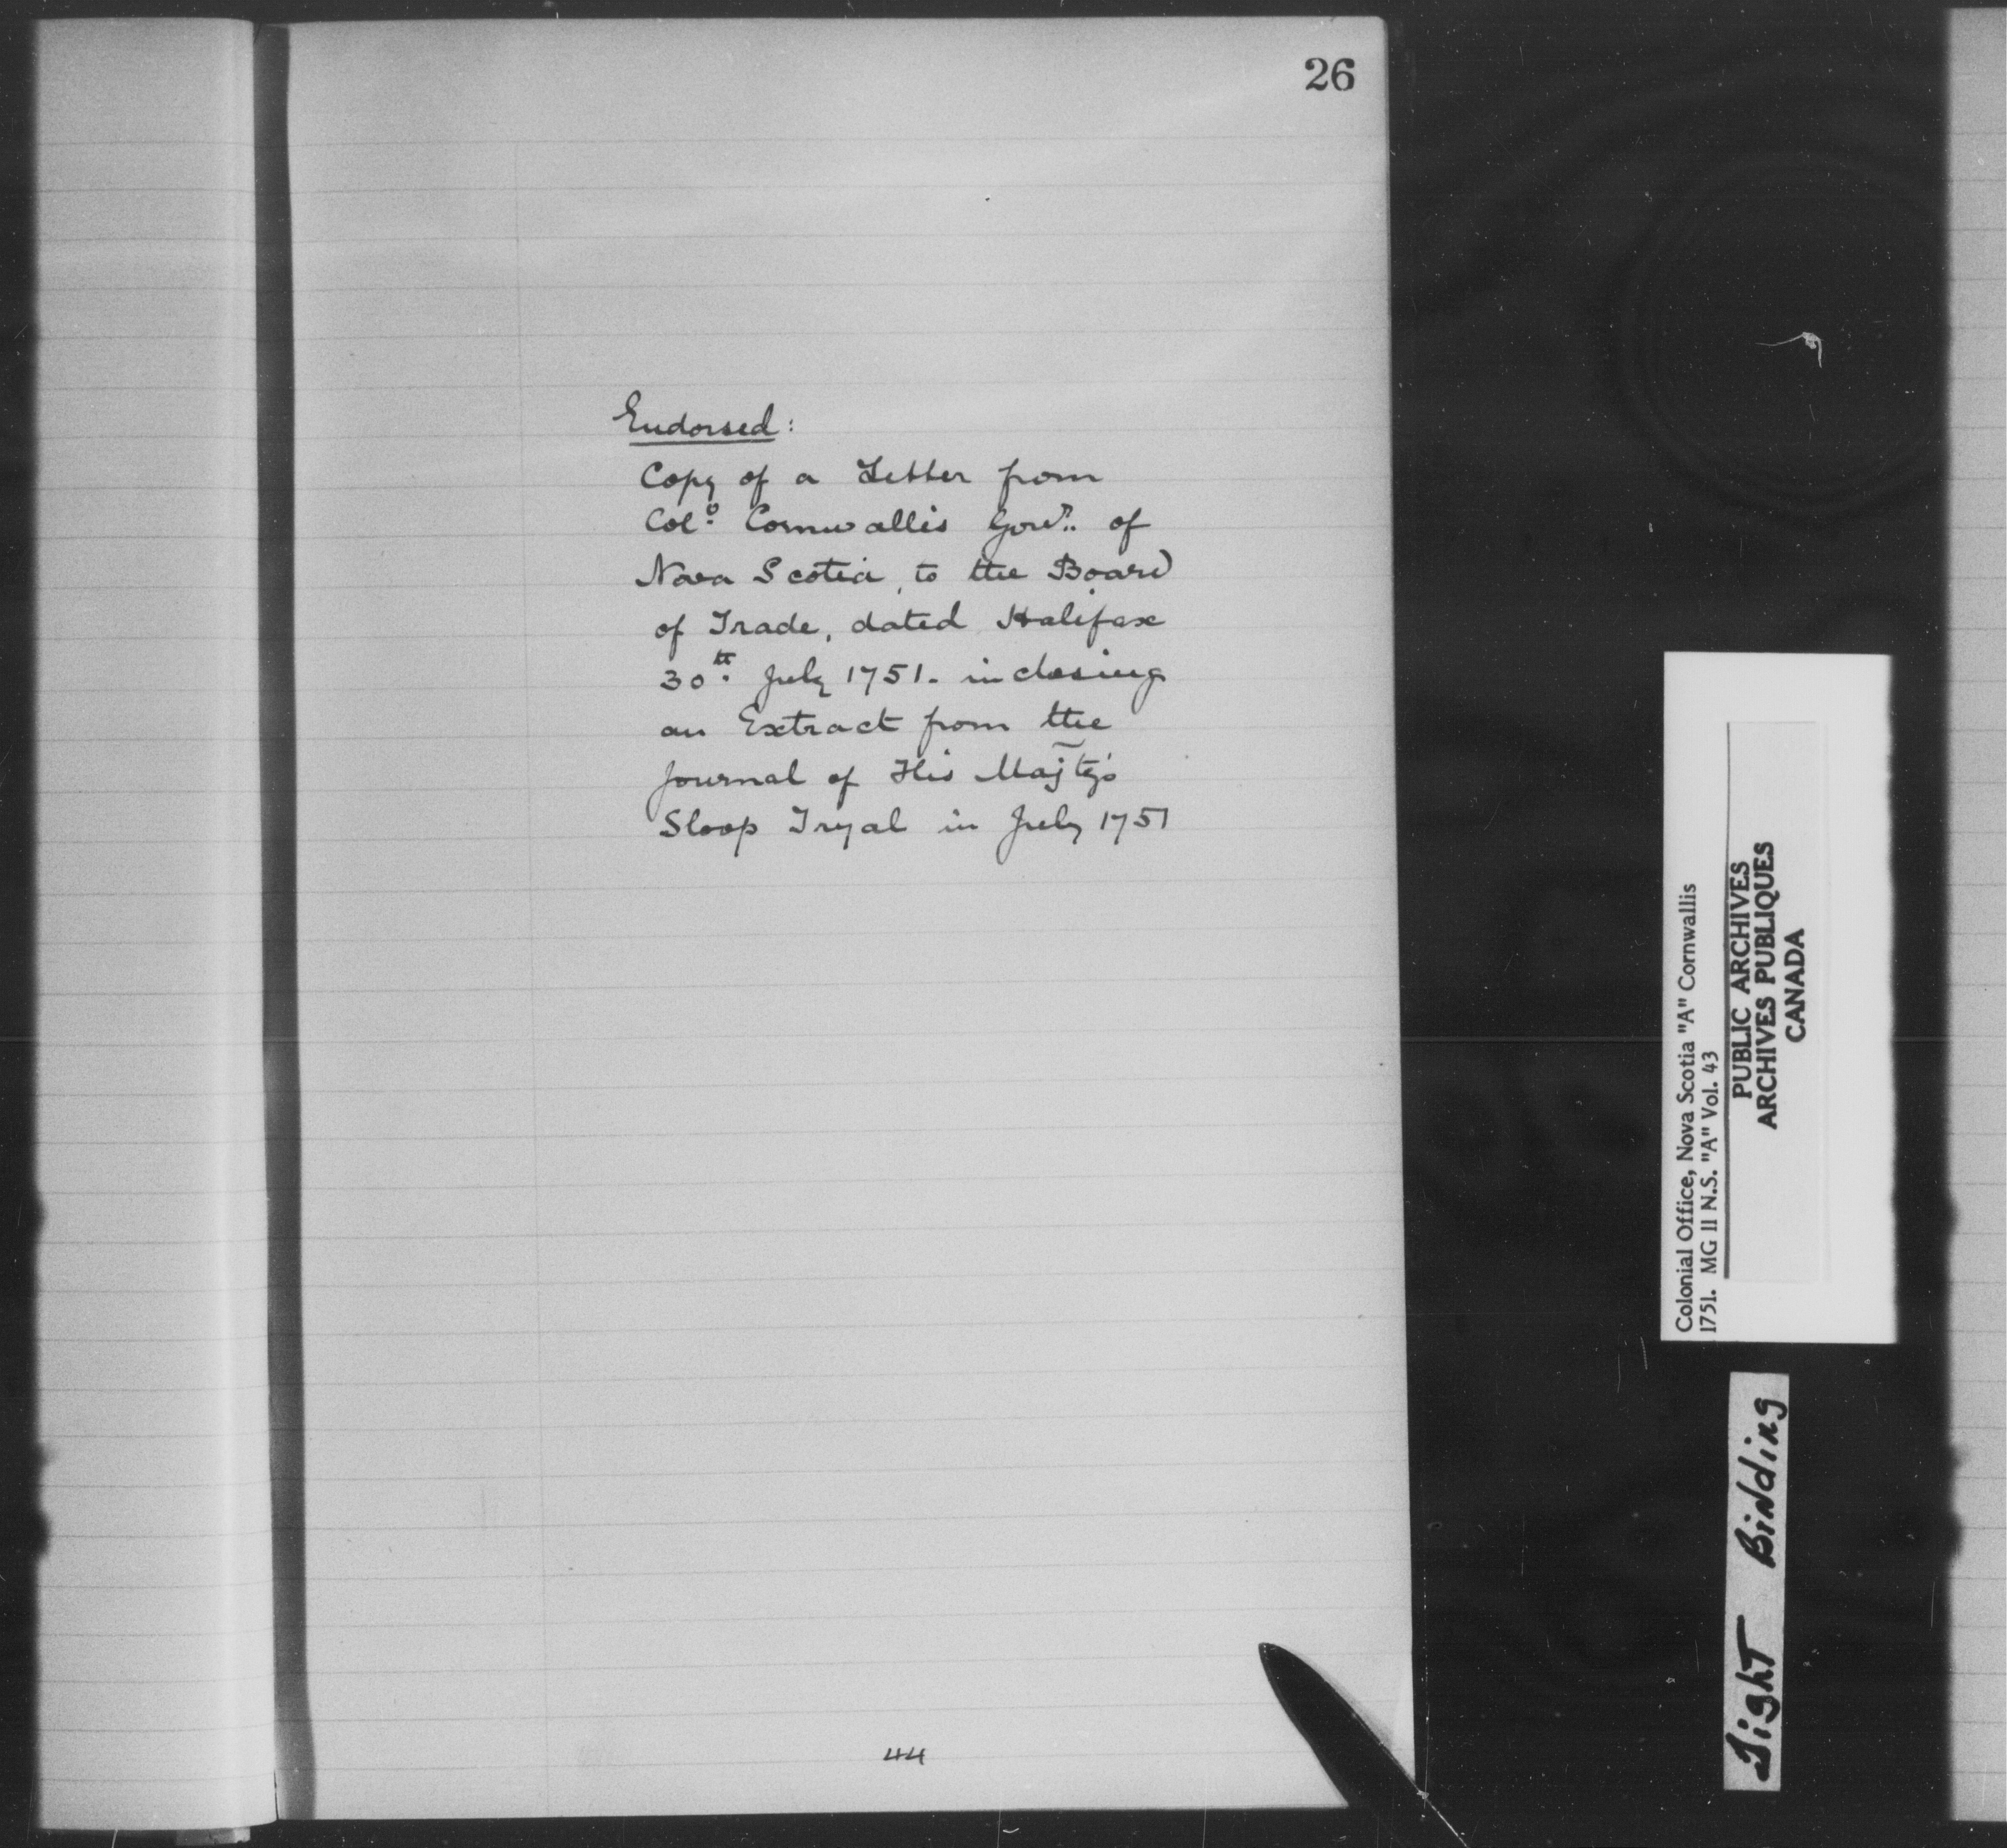 26
Endorsed:
Copy of a Letter from
Colº. Cornwallis Govʳ.. of
Nova Scotia, to the Board
of Trade, dated Halifax
30ᵗʰ. July 1751. inclosing
an Extract from the
Journal of His Maj̃ty's
Sloop Tryal in July 1751
44
Colonial Office, Nova Scotia "A" Cornwallis
1751. MG 11 N.S. "A" Vol. 43
PUBLIC ARCHIVES
ARCHIVES PUBLIQUES
CANADA
Tight Binding